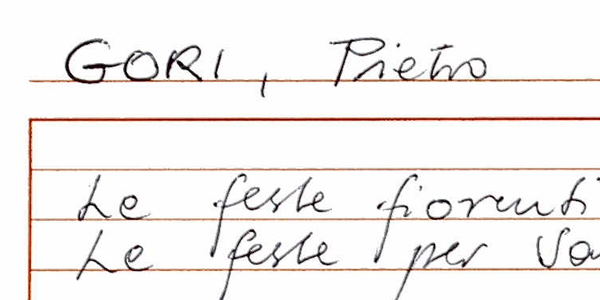 GORI, Pietro
Le feste fiorenti
Le feste per